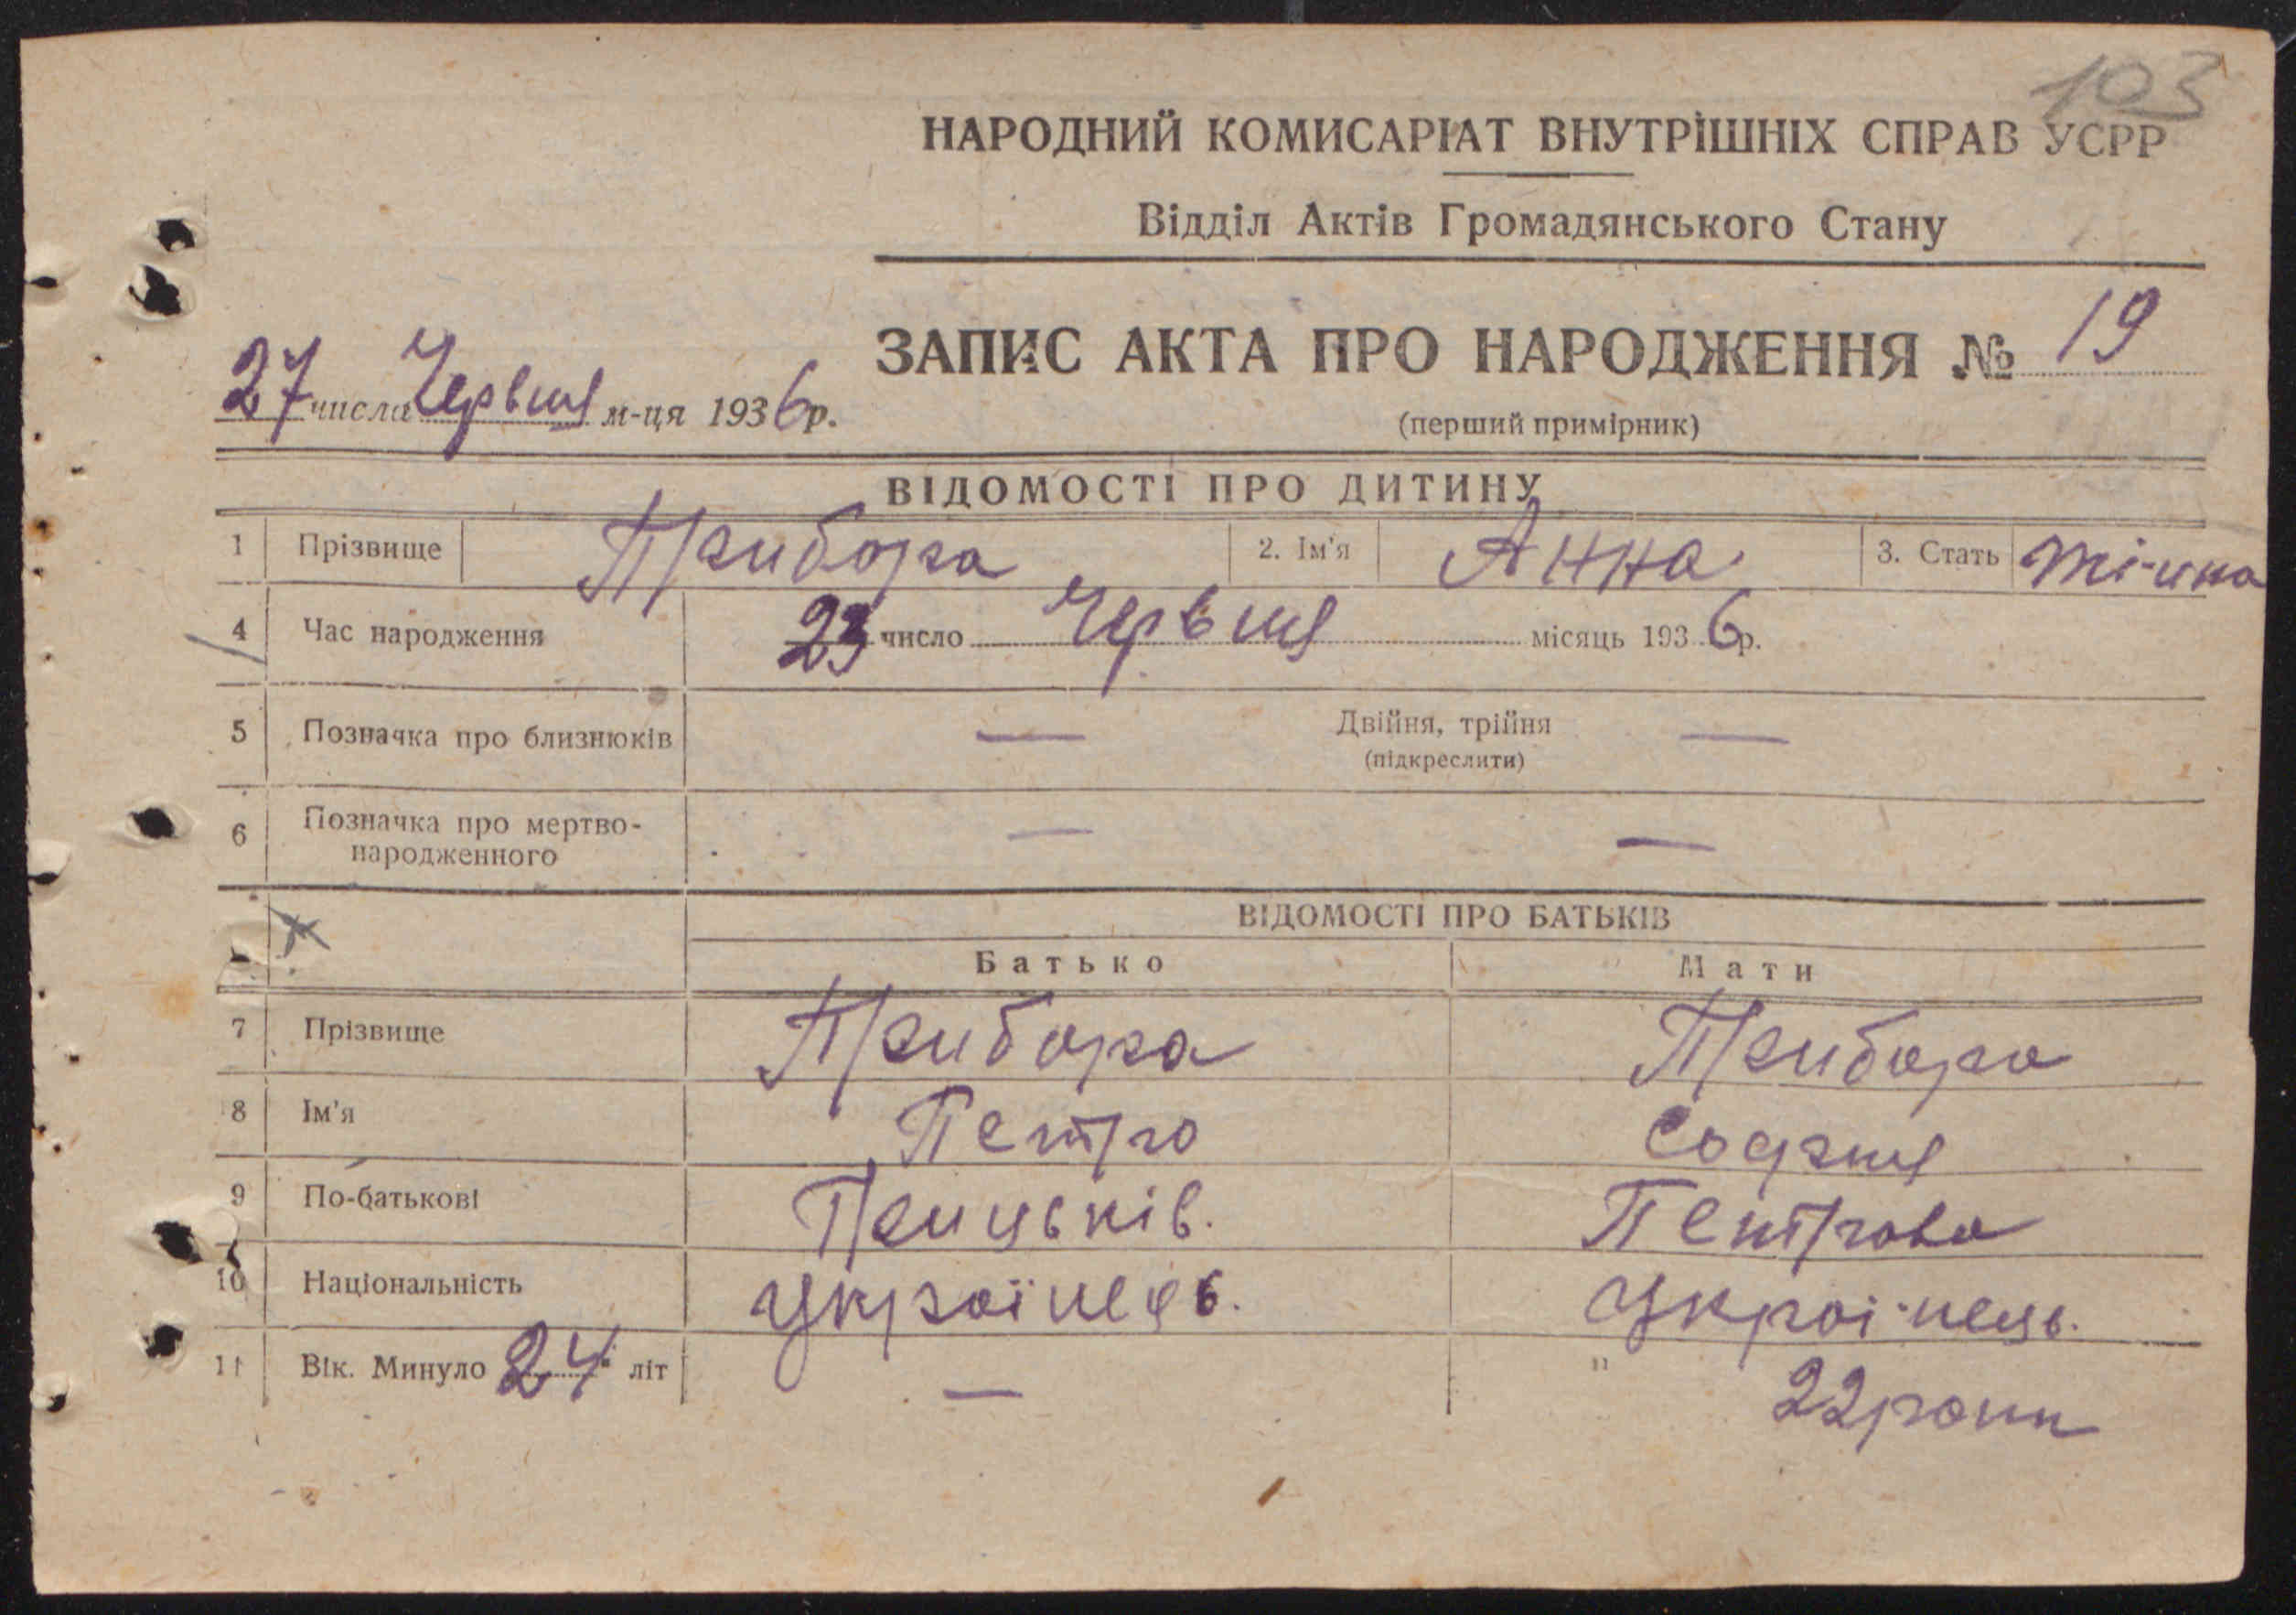 103
НАРОДНИЙ КОМИСАРІАТ ВНУТРІШНІХ СПРАВ УСРР
Відділ Актів Громадянського Стану
ЗАПИС АКТА ПРО НАРОДЖЕННЯ № 19
27 числа Червця м-ця 1936 р.
(перший примірник)
ВІДОМОСТІ ПРО ДИТИНУ
1 Прізвище Прибора 2. Ім'я Анна 3. Стать
4 Час народження 23 число Червця місяць 1936 р.
5 Позначка про близнюків — Двійня, трійня —
(підкреслити)
6 Позначка про мертво-
народженного — —
ВІДОМОСТІ ПРО БАТЬКІВ
Батько Мати
7 Прізвище Прибора Прибора
8 Ім'я Петро Софія
9 По-батькові Грицьків. Петрова
10 Національність Українець. Украі-нець.
11 Вік. Минуло 24 літ — " 22 роки